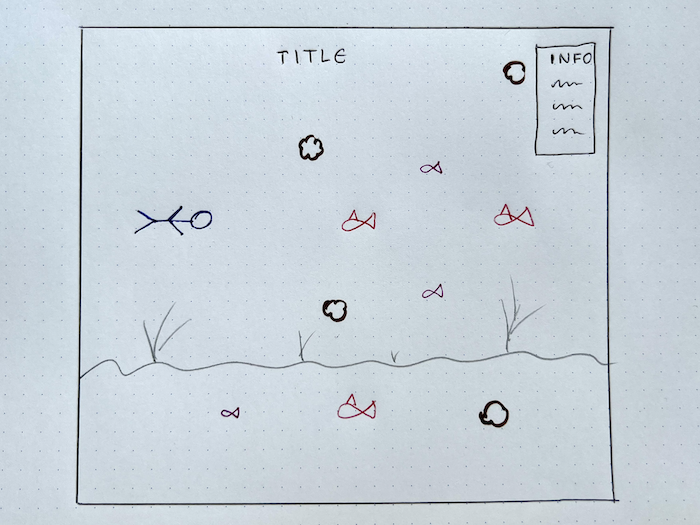 TITLE
INFO